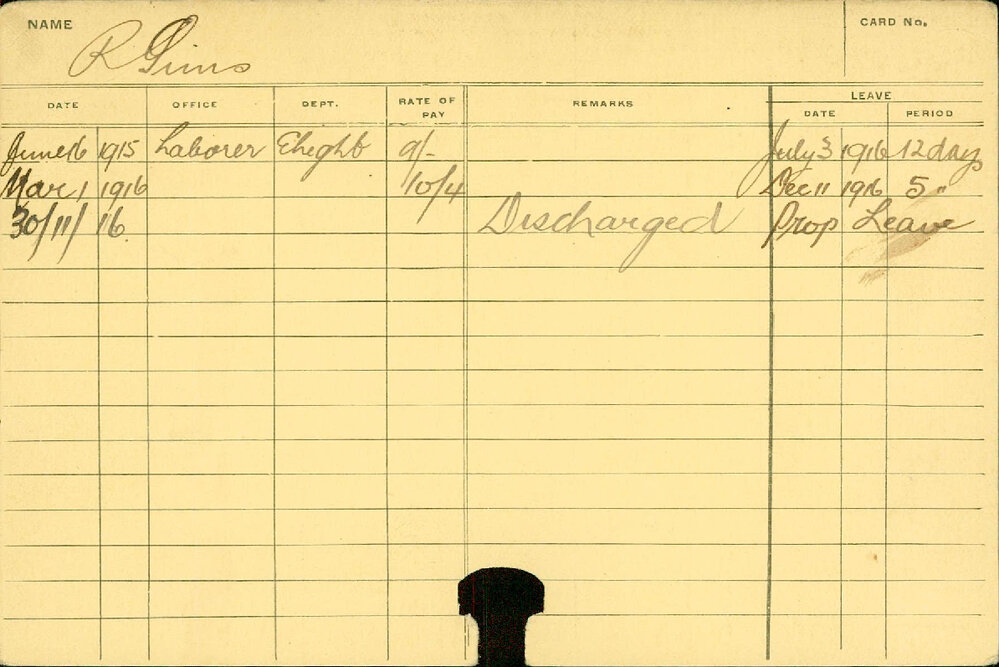 NAME R Sims CARD No.
LEAVE
DATE OFFICE DEPT. RATE OF PAY REMARKS DATE PERIOD
June 16 1915 Laborer Elteght 9/- July 3 1916 12 days
Mar 1 1916 10/4 Dec 11 1916 5 "
30/11/16 Discharged Prop Leave